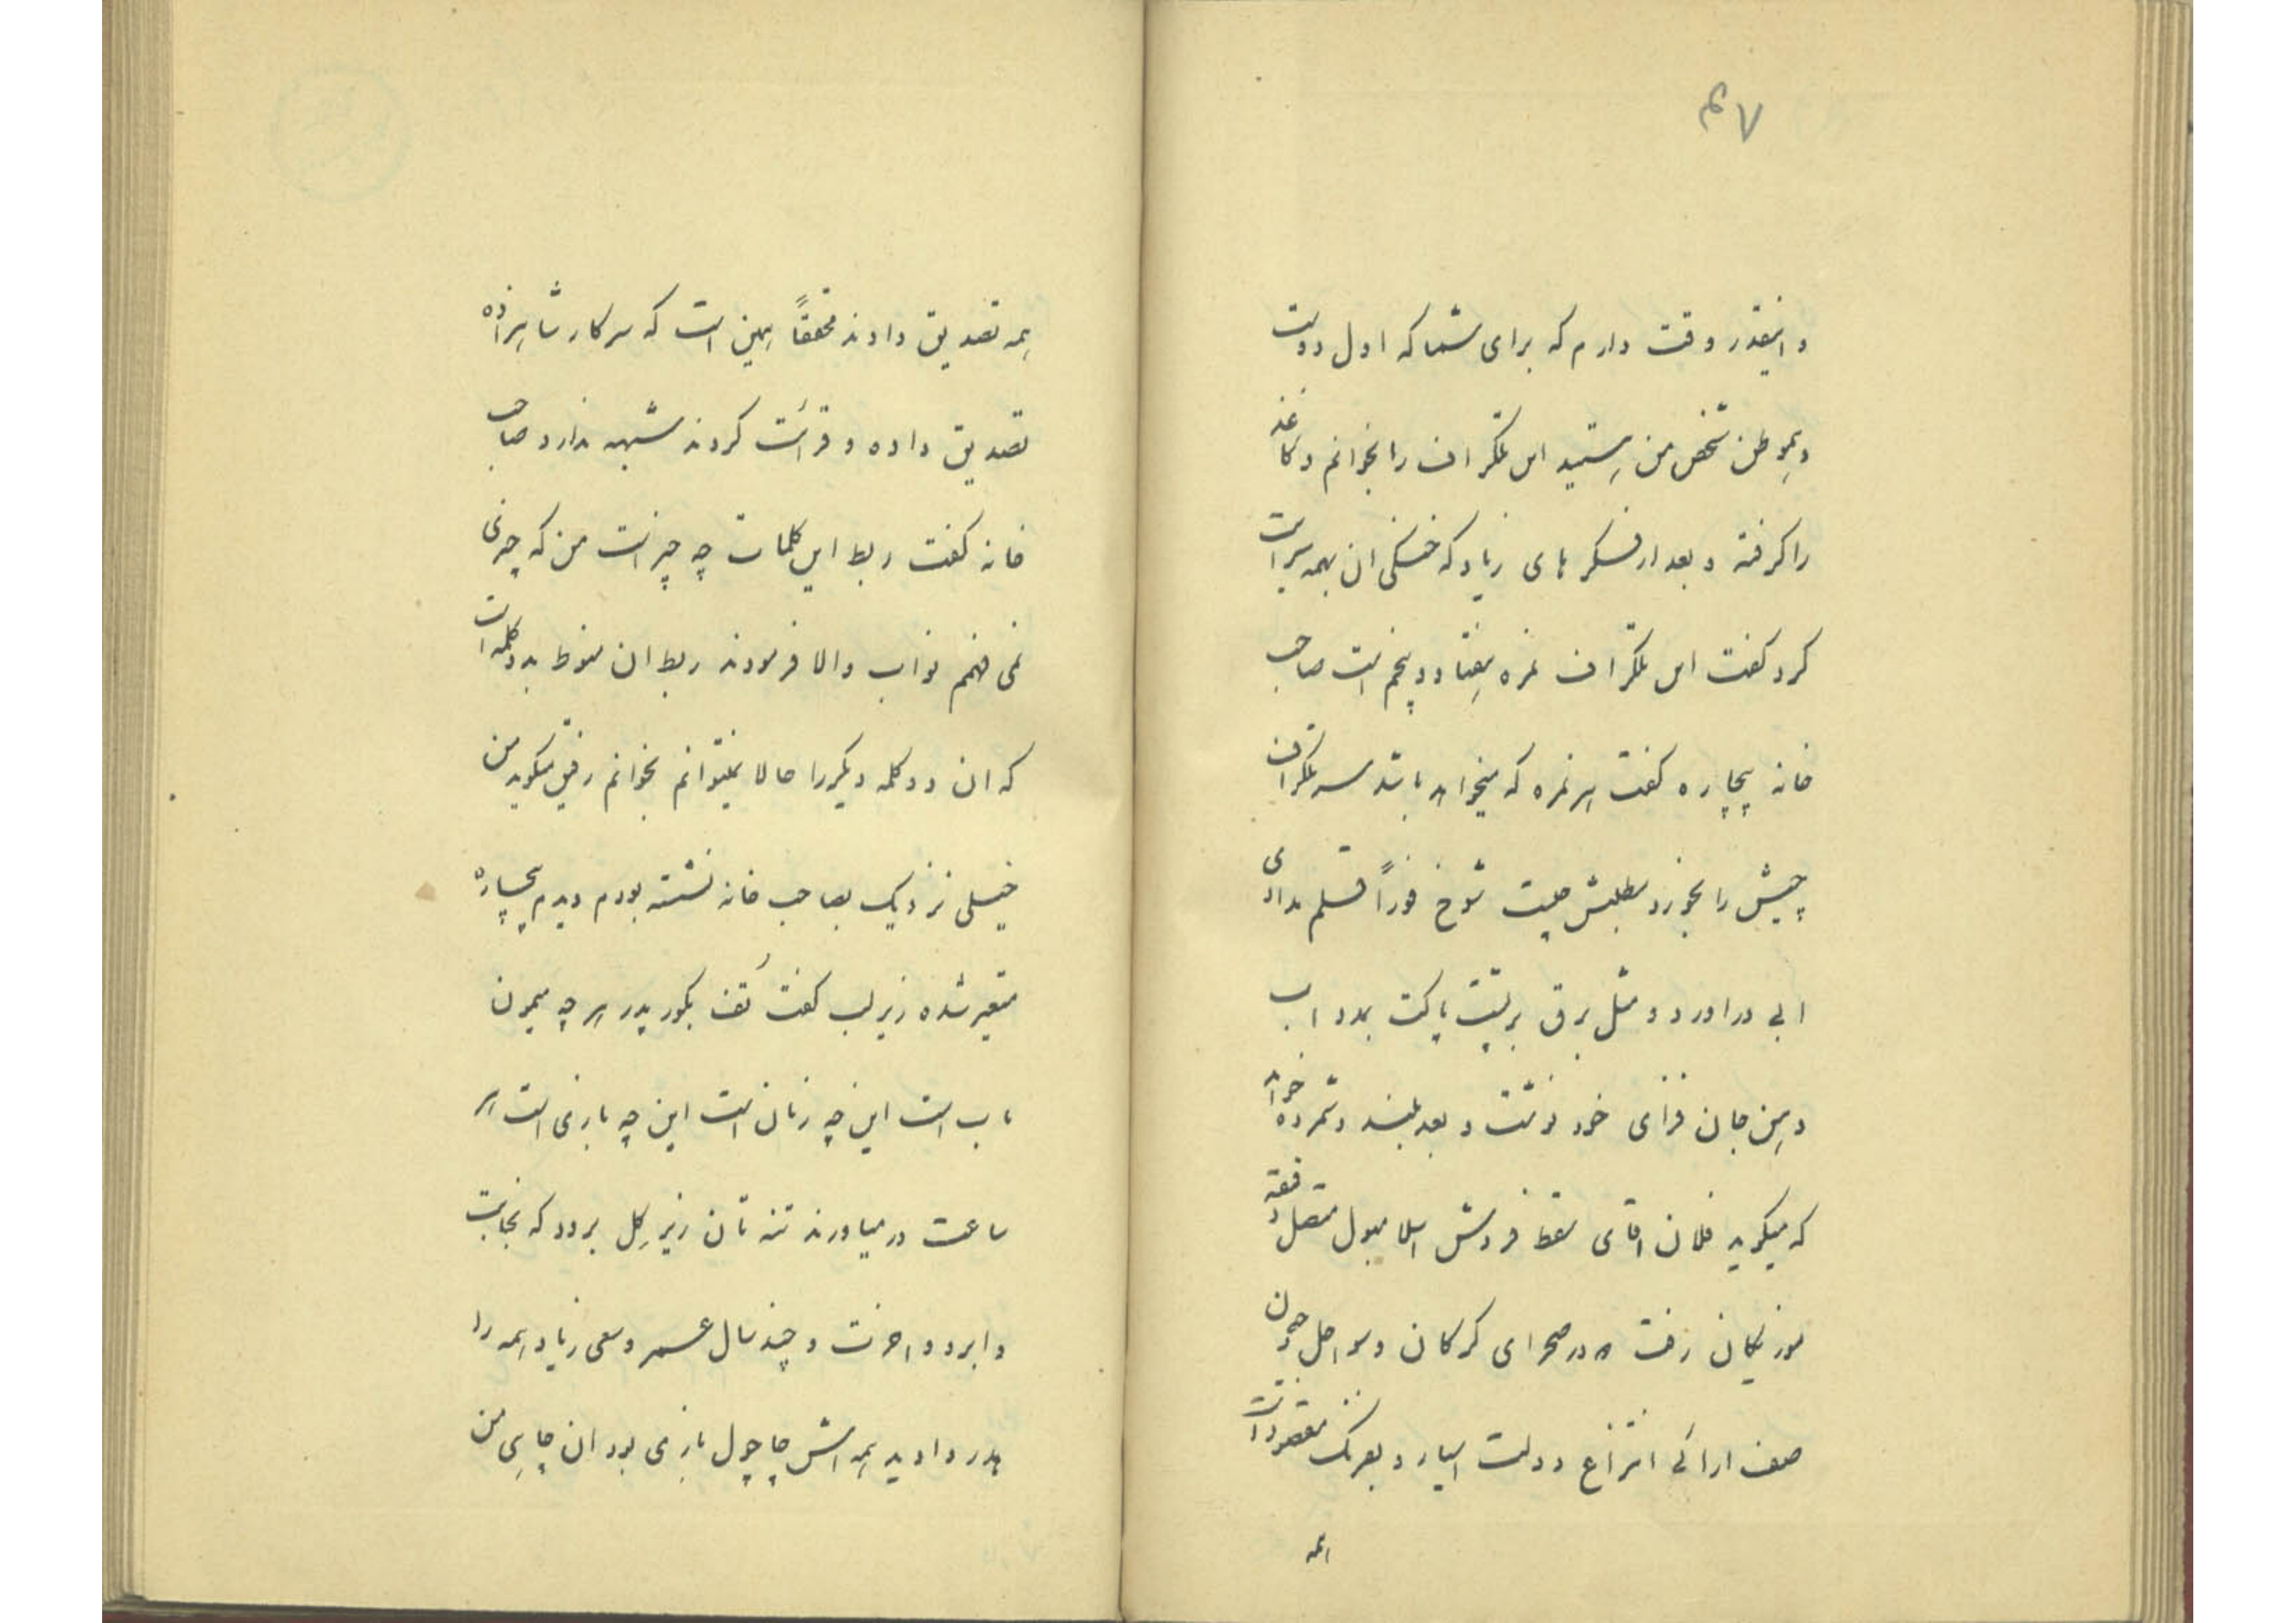 ۴۷
و اینقدر وقت دارم که برای شما که اول دوست
و هموطن شخص من هستید این تلگراف را بخوانم و کاغذ
را گرفته و بعد از فکر های زیاد که خستگی ان بهمه سرایت
کرد گفت این تلگراف نمره هفتاد و پنجم است صاحب
خانه بیچاره گفت هر نمره که میخواهد باشد سر تلگراف
چیش را بخورد مطلبش چیست شوخ فوراً قلم مدادی
ابی در اورد و مثل برق بر پشت پاکت بمدد اب
دهن جان فزای خود نوشت و بعد بلند و شمرده خواند
که میگوید فلان اقای سقط فروش اسلامبول متصل دفعة
موزیکان رفت در صحرای گرگان و سواحل جون
صف ارائی انتزاع دولت بفرنگ مقصود است
همه
همه تصدیق دادند محققاً همین است که سرکار شاهزاده
تصدیق داده و قرائت کردند شبهه ندارد صاحب
خانه گفت ربط این کلمات چه چیز است من که چیزی
نمی فهمم نواب والا فرمودند ربط ان منوط بدو کلمه است
که ان دو کلمه دیگر را حالا نمیتوانم بخوانم رفیق میگوید من
خیلی نزدیک بصاحب خانه نشسته بودم دیدم بیچاره
متغیر شده زیر لب گفت تُف بگور پدر هر چه میمون
باب است این چه زبان است این چه بازی است هر
ساعت در میاورند تنه تان زیر گِل برود که نجابت
و ابرو و اخرت و چند سال عمر و سعی زیاد همه را
هدر دادید همه اش چاچول بازی بود ان چاهی من